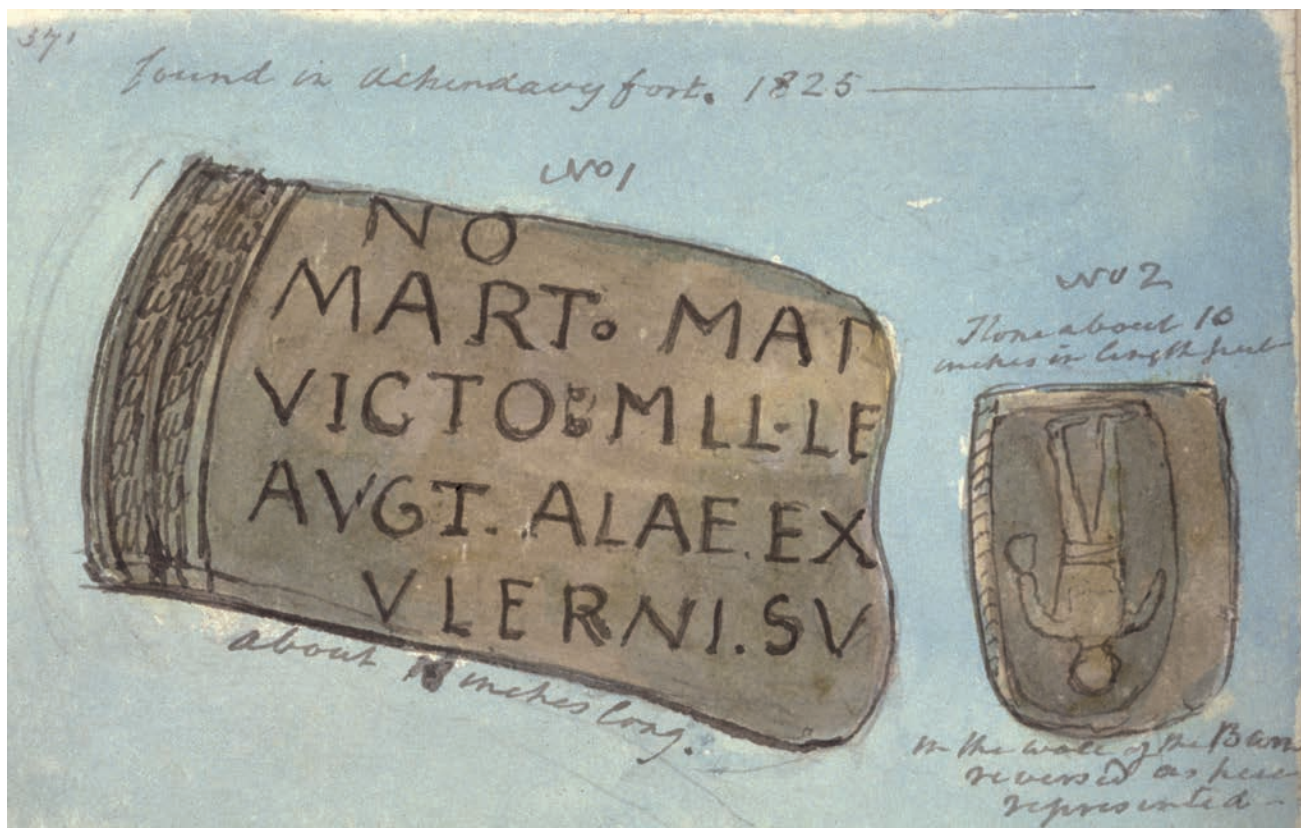 371
found in Achindavy fort. 1825
No 1
NO
MART. MAT
VICTO MLL.LE
AVGT. ALAE.EX
VLERNI.SV
about inches long.
No 2
Stone about 10
inches in length
in the wall of the Barn
reversed as here
represented